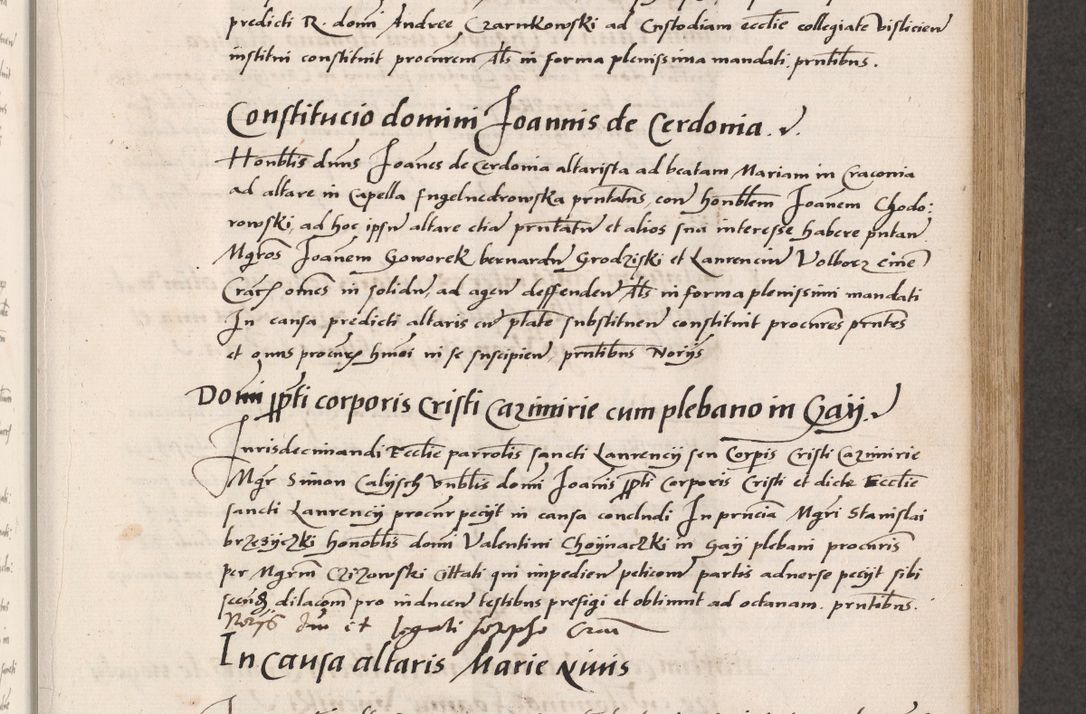 predicti R. domi Andree Czarnkowski ad Custodiam ecclie collegiate Visliciens
institui constituit procurem Als in forma plenissima mandati, prntibus.
Constitucio domini Joannis de Cerdonia.
Honblis duns Joanes de Cerdonia altarista ad beatam Mariam in Craconia
ad altare in Capella Ingelnedrowska prntatus, con honblem Joanem Chodo:
rowski, ad hoc ipsu altare etia prntatu et alios sua interesse habere putan
Mgros Joanem Goworek bernardu Grodziski et Laurenciu Volborz
omes in solidu, ad agen deffenden Als in forma plenissimi mandati
In causa predicti altaris cu substituen constituit procures prntes
et onus hmoi in se suscipien, prntibus Norijs
Domi ppti corporis Cristi Cazimirie cum plebano in Gaij.
Jurisdecimandi Ecclie parrolis sancti Laurencij seu Corpis Cristi Cazimirie
Mgr Simon Calijsch Vnblis domi Joanis ppti Corporis Cristi et dicte Ecclie
sancti Laurencij procur pecijt in causa concludi In prncia Mgri Stanislai
brzezyczki honoblis domi Valentini Choijnaczki in Gaij plebani procuris
per Mgrm Czizowski Cittati qui impedien peticom partis aduerse pecijt sibi
dilacom pro inducen testibus prefigi et obtinuit ad octanam. prntibus.
Norijs
In causa altaris Marie Niuis